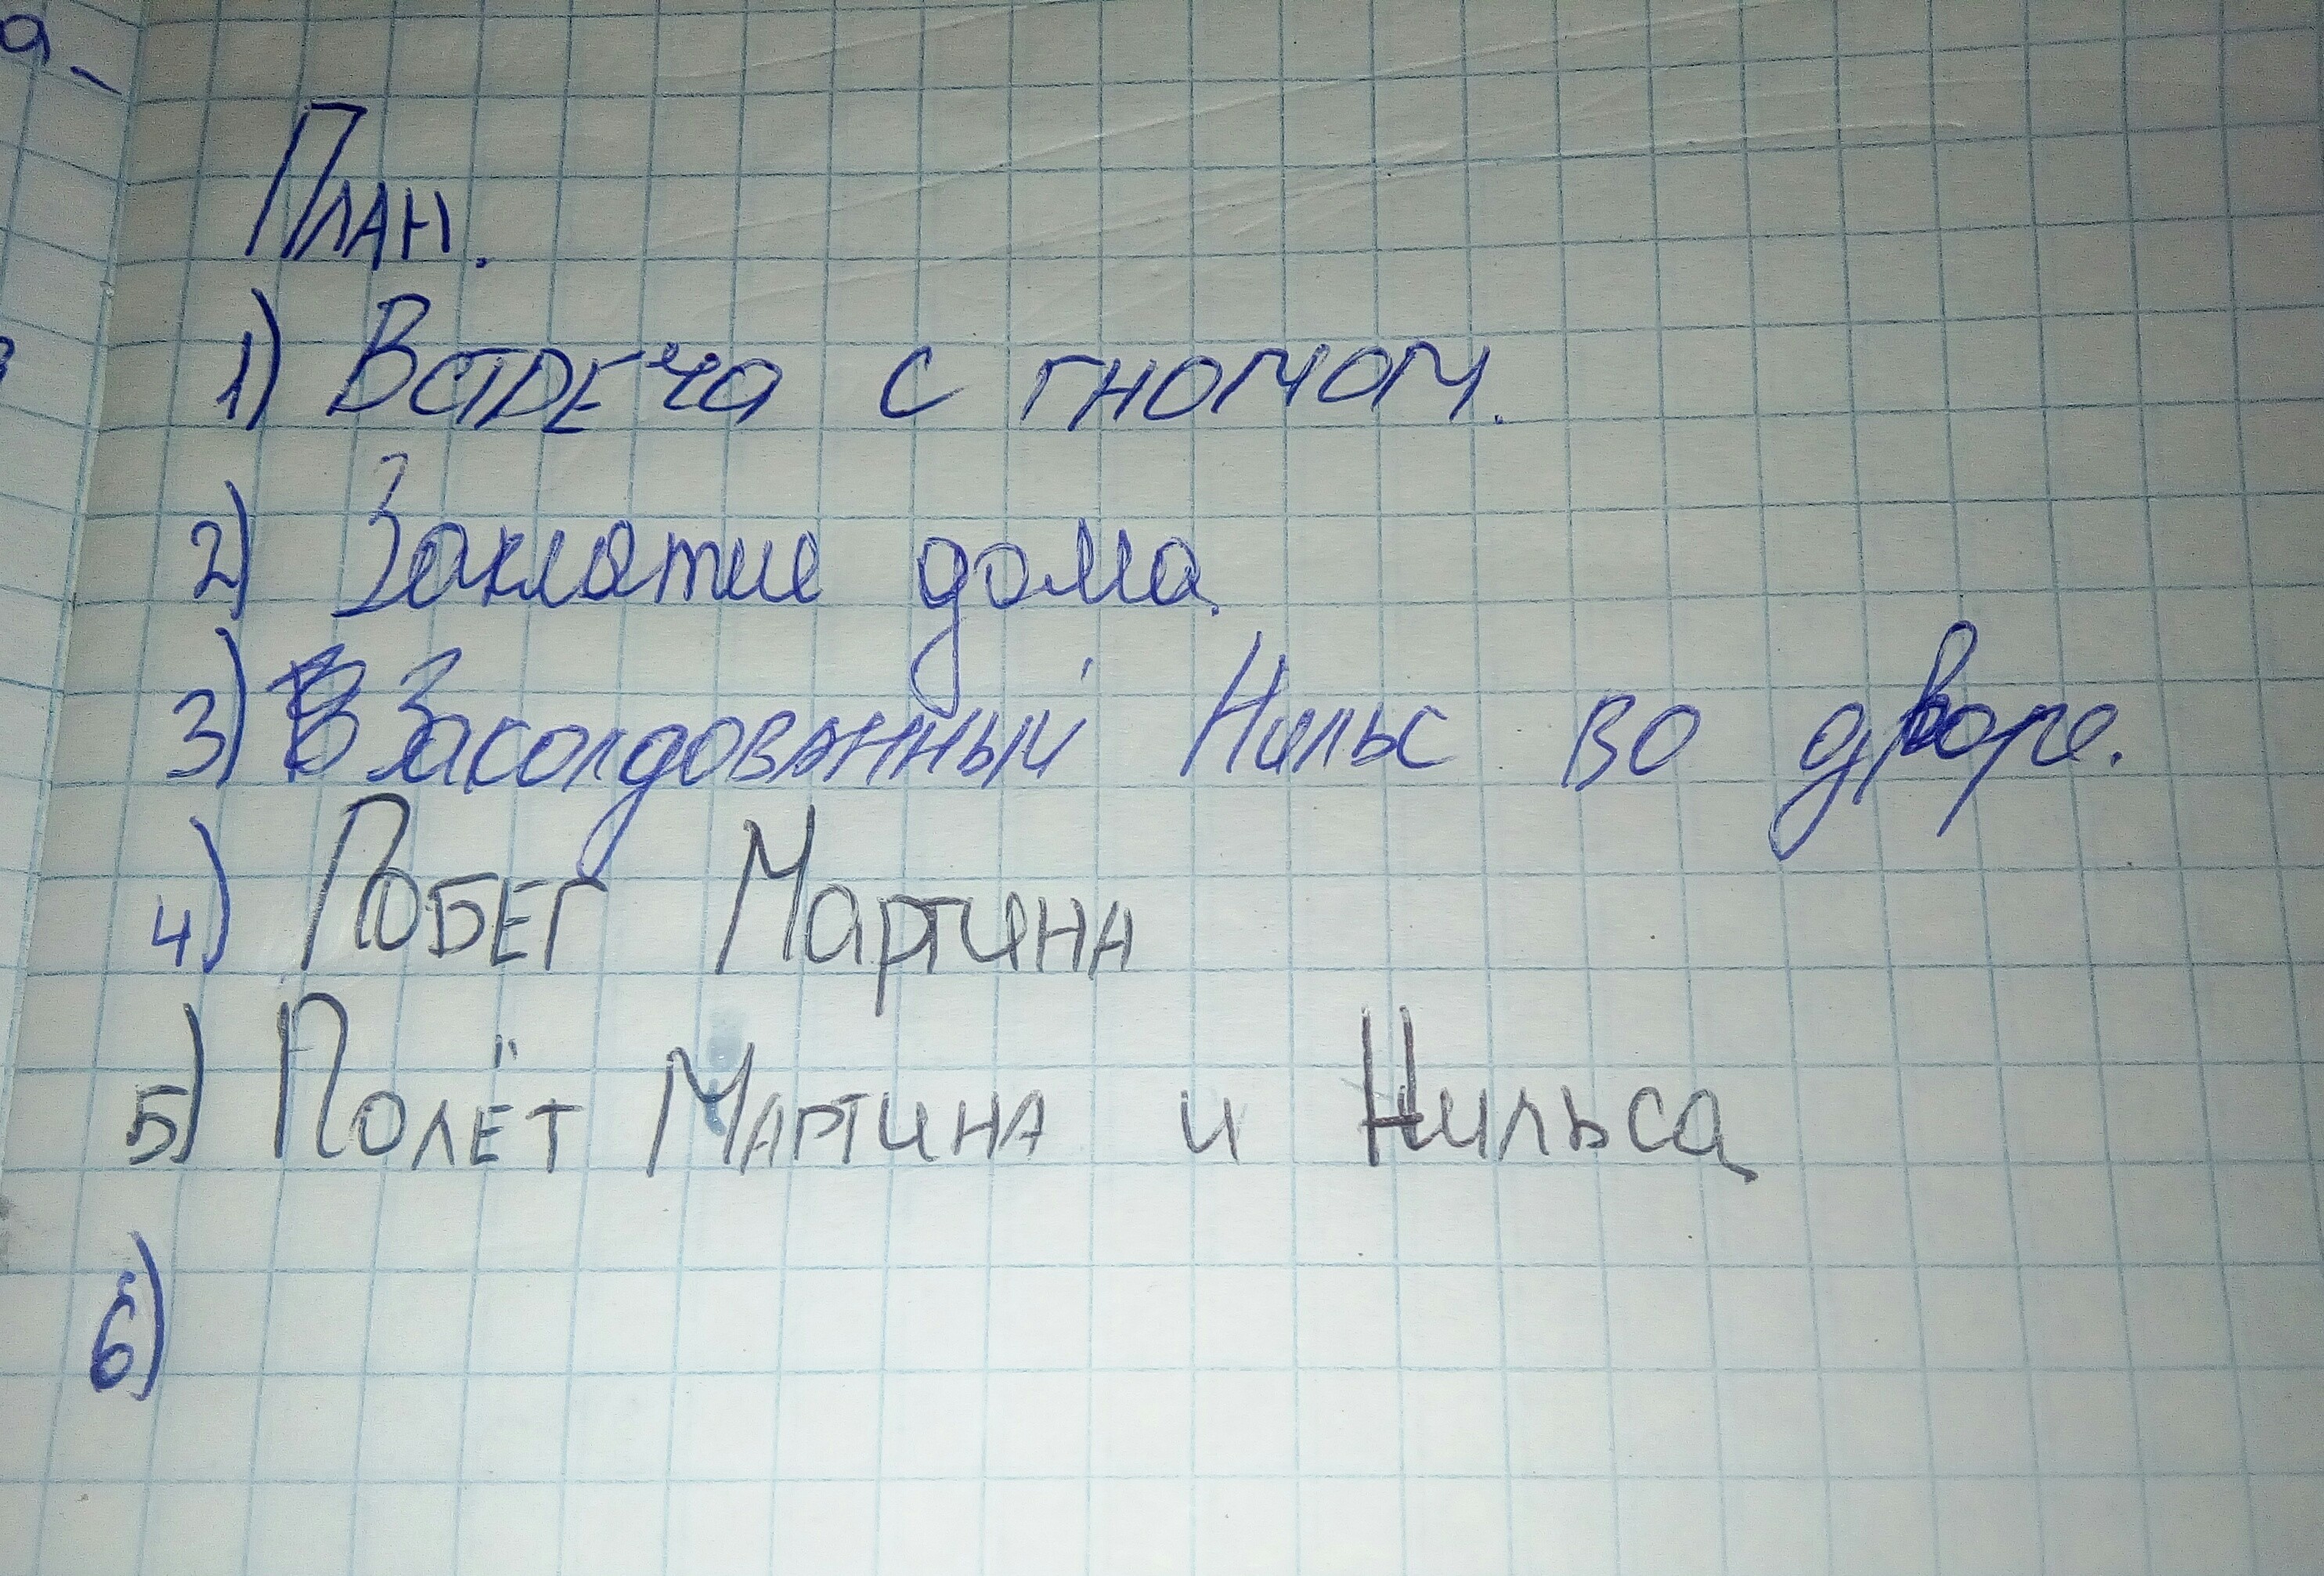 План.
1) Встреча с гномом.
2) Заклятие дома.
3) Заколдованный Нильс во дворе.
4) Побег Мартина
5) Полёт Мартина и Нильса
6)